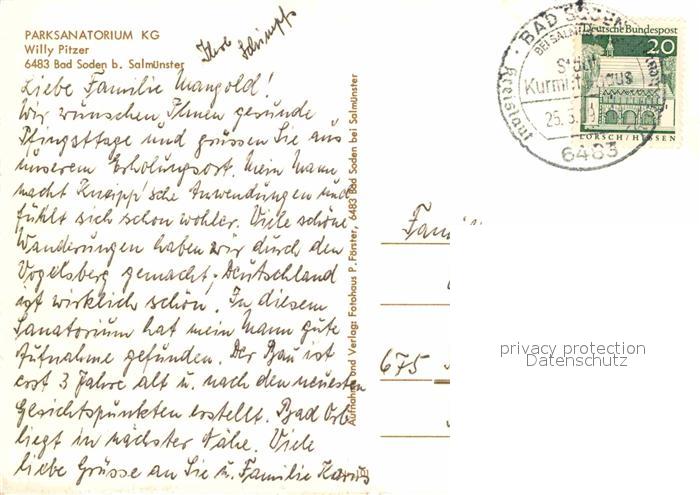 PARKSANATORIUM KG
Willy Pitzer
6483 Bad Soden b. Salmünster
Liebe Familie Mangold!
Wir wünschen Ihnen gesunde
Pfingsttage und grüssen Sie aus
unserem Erholungsort. Mein Mann
macht Kneipp'sche Anwendungen und
fühlt sich schon wohler. Viele schöne
Wanderungen haben wir durch den
Vogelsberg gemacht; Deutschland
ist wirklich schön! In diesem
Sanatorium hat mein Mann gute
Aufnahme gefunden. Der Bau ist
erst 3 Jahre alt u. nach den neuesten
Gesichtspunkten erstellt. Bad Orb
liegt in nächster Nähe. Viele
liebe Grüsse an Sie u. Familie
Aufnahme und Verlag: Fotohaus P. Förster, 6483 Bad Soden bei Salmünster
BAD SODEN
BEI SALM
Kurmit
25.
6483
Deutsche Bundespost
20
LORSCH/HESSEN
Fam
675
privacy protection
Datenschutz